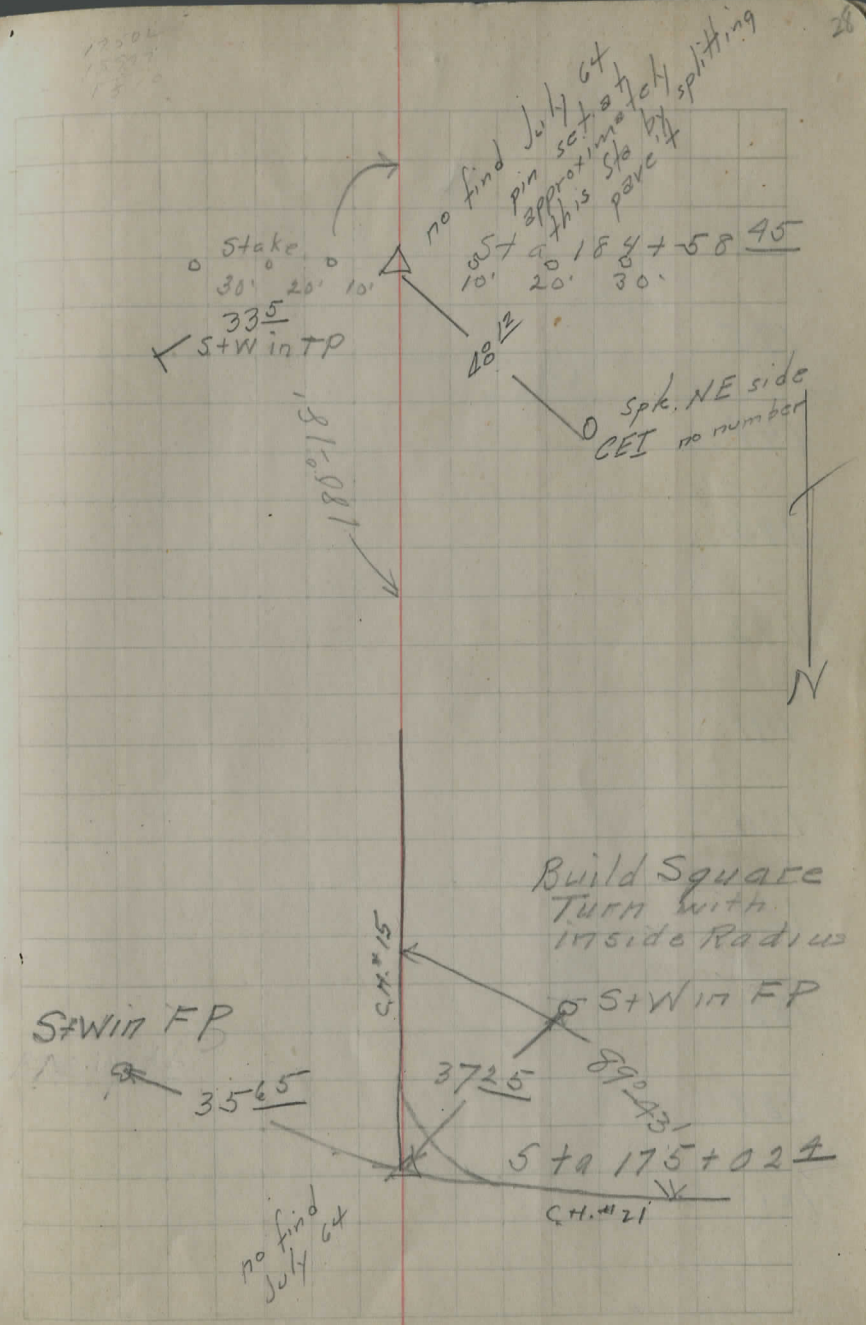 28
no find July 64
pin set at
approximately
this Sta by splitting
pave't
Stake
Sta 184+58 45
30' 20' 10'
10' 20' 30'
33 5
S+W in TP
40 12
Spk. NE side
CEI no number
180°-18'
N
Build Square
Turn with
inside Radius
C.H.#15
S+W in FP
S+W in FP
37 25
89°-43'
35 65
Sta 175+02 4
C.H.#21
no find
July 64